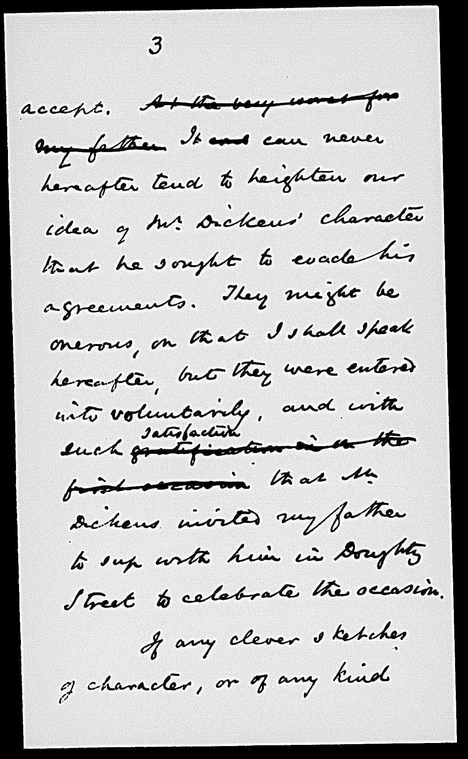 3
accept. At the very worst for
my father It and can never
hereafter tend to heighten our
idea of Mr. Dickens' character
that he sought to evade his
agreements. They might be
onerous, on that I shall speak
hereafter, but they were entered
into voluntarily, and with
satisfaction
such gratification in on the
first occasion that Mr
Dickens invited my father
to sup with him in Doughty
Street to celebrate the occasion.
If any clever sketches
of character, or of any kind